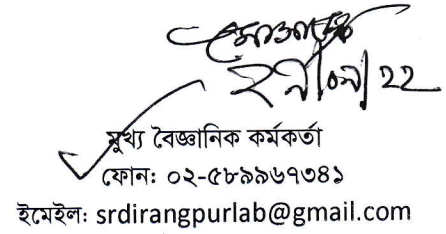 মুখ্য বৈজ্ঞানিক কর্মকর্তা
ফোন: ০২-৫৮৯৯৬৭৩৪১
ইমেইল: srdirangpurlab@gmail.com